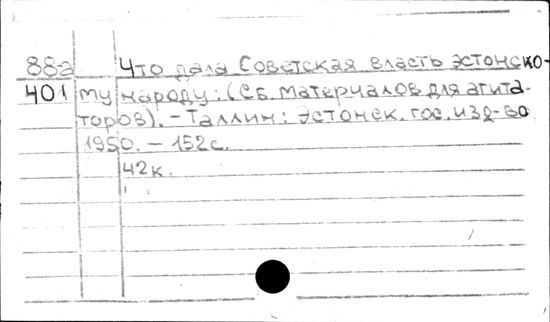 88а Что дала Советская власть эстонско-
401 му народу: (Сб. материалов для агита-
торов). - Таллин: Эстонск. гос. изд-во
1950. - 152 с.
42к.